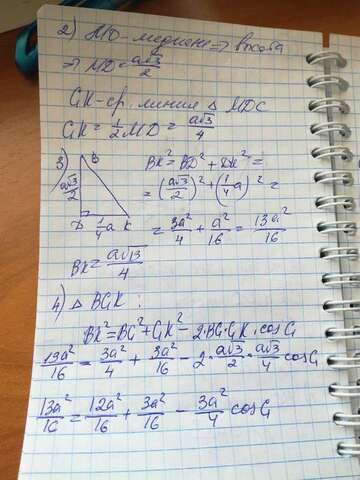 2) MD - медиана => высота
=> MD = a√3/2
GK - ср. линия △ MDC
GK = 1/2 MD = a√3/4
3)
B
a√3/2
D 1/4 a K
BK² = BD² + DK² =
= (a√3/2)² + (1/4 a)² =
= 3a²/4 + a²/16 = 13a²/16
BK = a√13/4
4) △ BGK :
BK² = BG² + GK² - 2·BG·GK·cosG
13a²/16 = 3a²/4 + 3a²/16 - 2·a√3/2·a√3/4 cosG
13a²/16 = 12a²/16 + 3a²/16 - 3a²/4 cosG